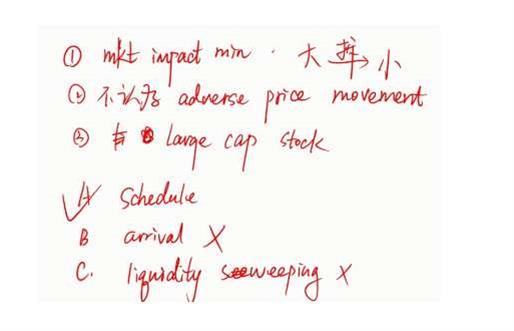 ① mkt impact min. 大 拆→ 小
② 不认为 adverse price movement
③ large cap stock
✓ A schedule
B arrival X
C. liquidity sweeping X